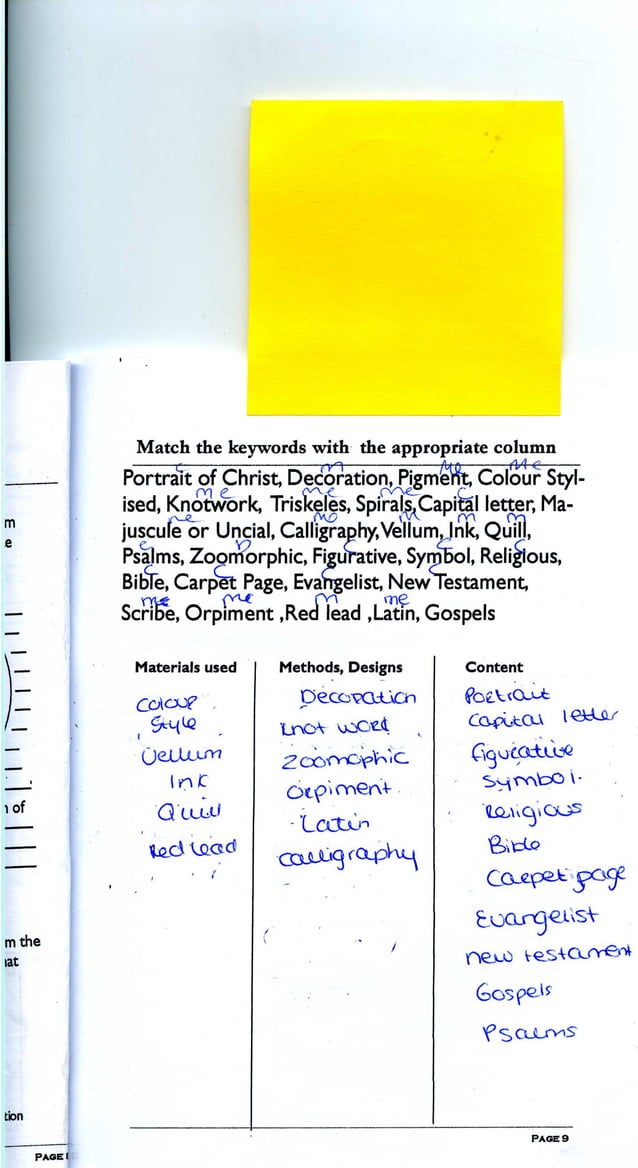 Match the keywords with the appropriate column
Portrait of Christ, Decoration, Pigment, Colour Styl-
ised, Knotwork, Triskeles, Spirals, Capital letter, Ma-
juscule or Uncial, Calligraphy, Vellum, Ink, Quill,
Psalms, Zoomorphic, Figurative, Symbol, Religious,
Bible, Carpet Page, Evangelist, New Testament,
Scribe, Orpiment ,Red lead ,Latin, Gospels
Materials used
Colour
Style
Vellum
Ink
Quill
Red Lead
Methods, Designs
Decoration
knot word
Zoomophic
Orpiment
Latin
Calligraphy
Content
Portrait
Capital letter
figurative
Symbol.
Religious
Bible
Carpet page
Evangelist
new testament
Gospels
Psalms
PAGE 9
m
e
of
m the
at
tion
PAGE